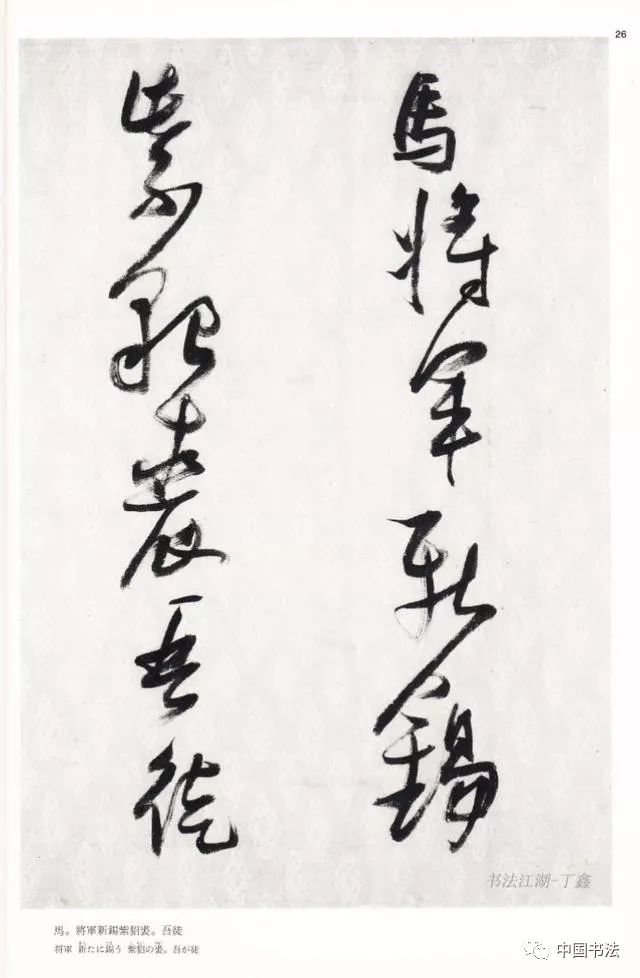 26
馬將軍新錫
紫貂裘吾徒
书法江湖-丁鑫
馬。將軍新錫紫貂裘。吾徒
将軍 新たに錫う 紫貂の裘。吾が徒
中国书法